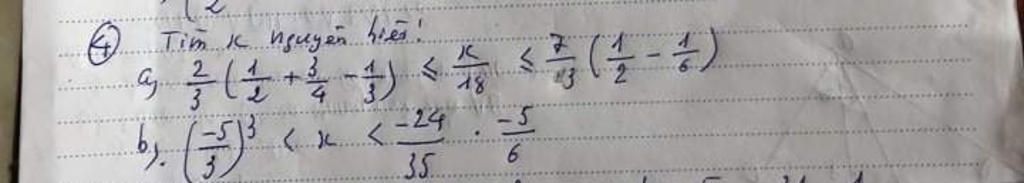 ④ Tìm x nguyên biết!
a, \frac{2}{3} ( \frac{1}{2} + \frac{3}{4} - \frac{1}{3} ) ≤ \frac{x}{18} ≤ \frac{7}{3} ( \frac{1}{2} - \frac{1}{6} )
b, ( \frac{-5}{3} )^3 < x < \frac{-24}{35} . \frac{-5}{6}